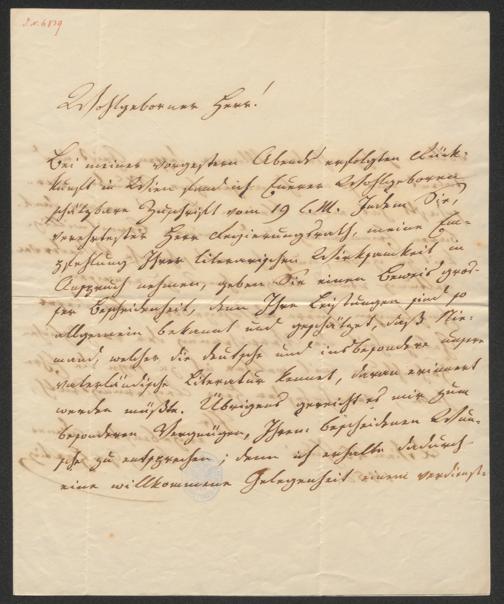 I. N. 6839
Wohlgeborner Herr!
Bei meiner vorgestern Abends erfolgten Rück-
kunft in Wien fand ich Euerer Wohlgeboren
schätzbare Zuschrift vom 19 l. M. Indem Sie,
verehrtester Herr Regierungsrath, meine Em-
pfehlung Ihrer literarischen Wirksamkeit in
Anspruch nehmen, geben Sie einen Beweis gros-
ser Bescheidenheit, denn Ihre Leistungen sind so
allgemein bekannt und geschätzt, daß Nie-
mand, welcher die deutsche und insbesondere unsere
vaterländische Literatur kennt, daran erinnert
werden müßte. Übrigens gereicht es mir zum
besonderen Vergnügen, Ihrem bescheidenen Wun-
sche zu entsprechen; denn ich erhalte dadurch
eine willkommene Gelegenheit einem verdienst-